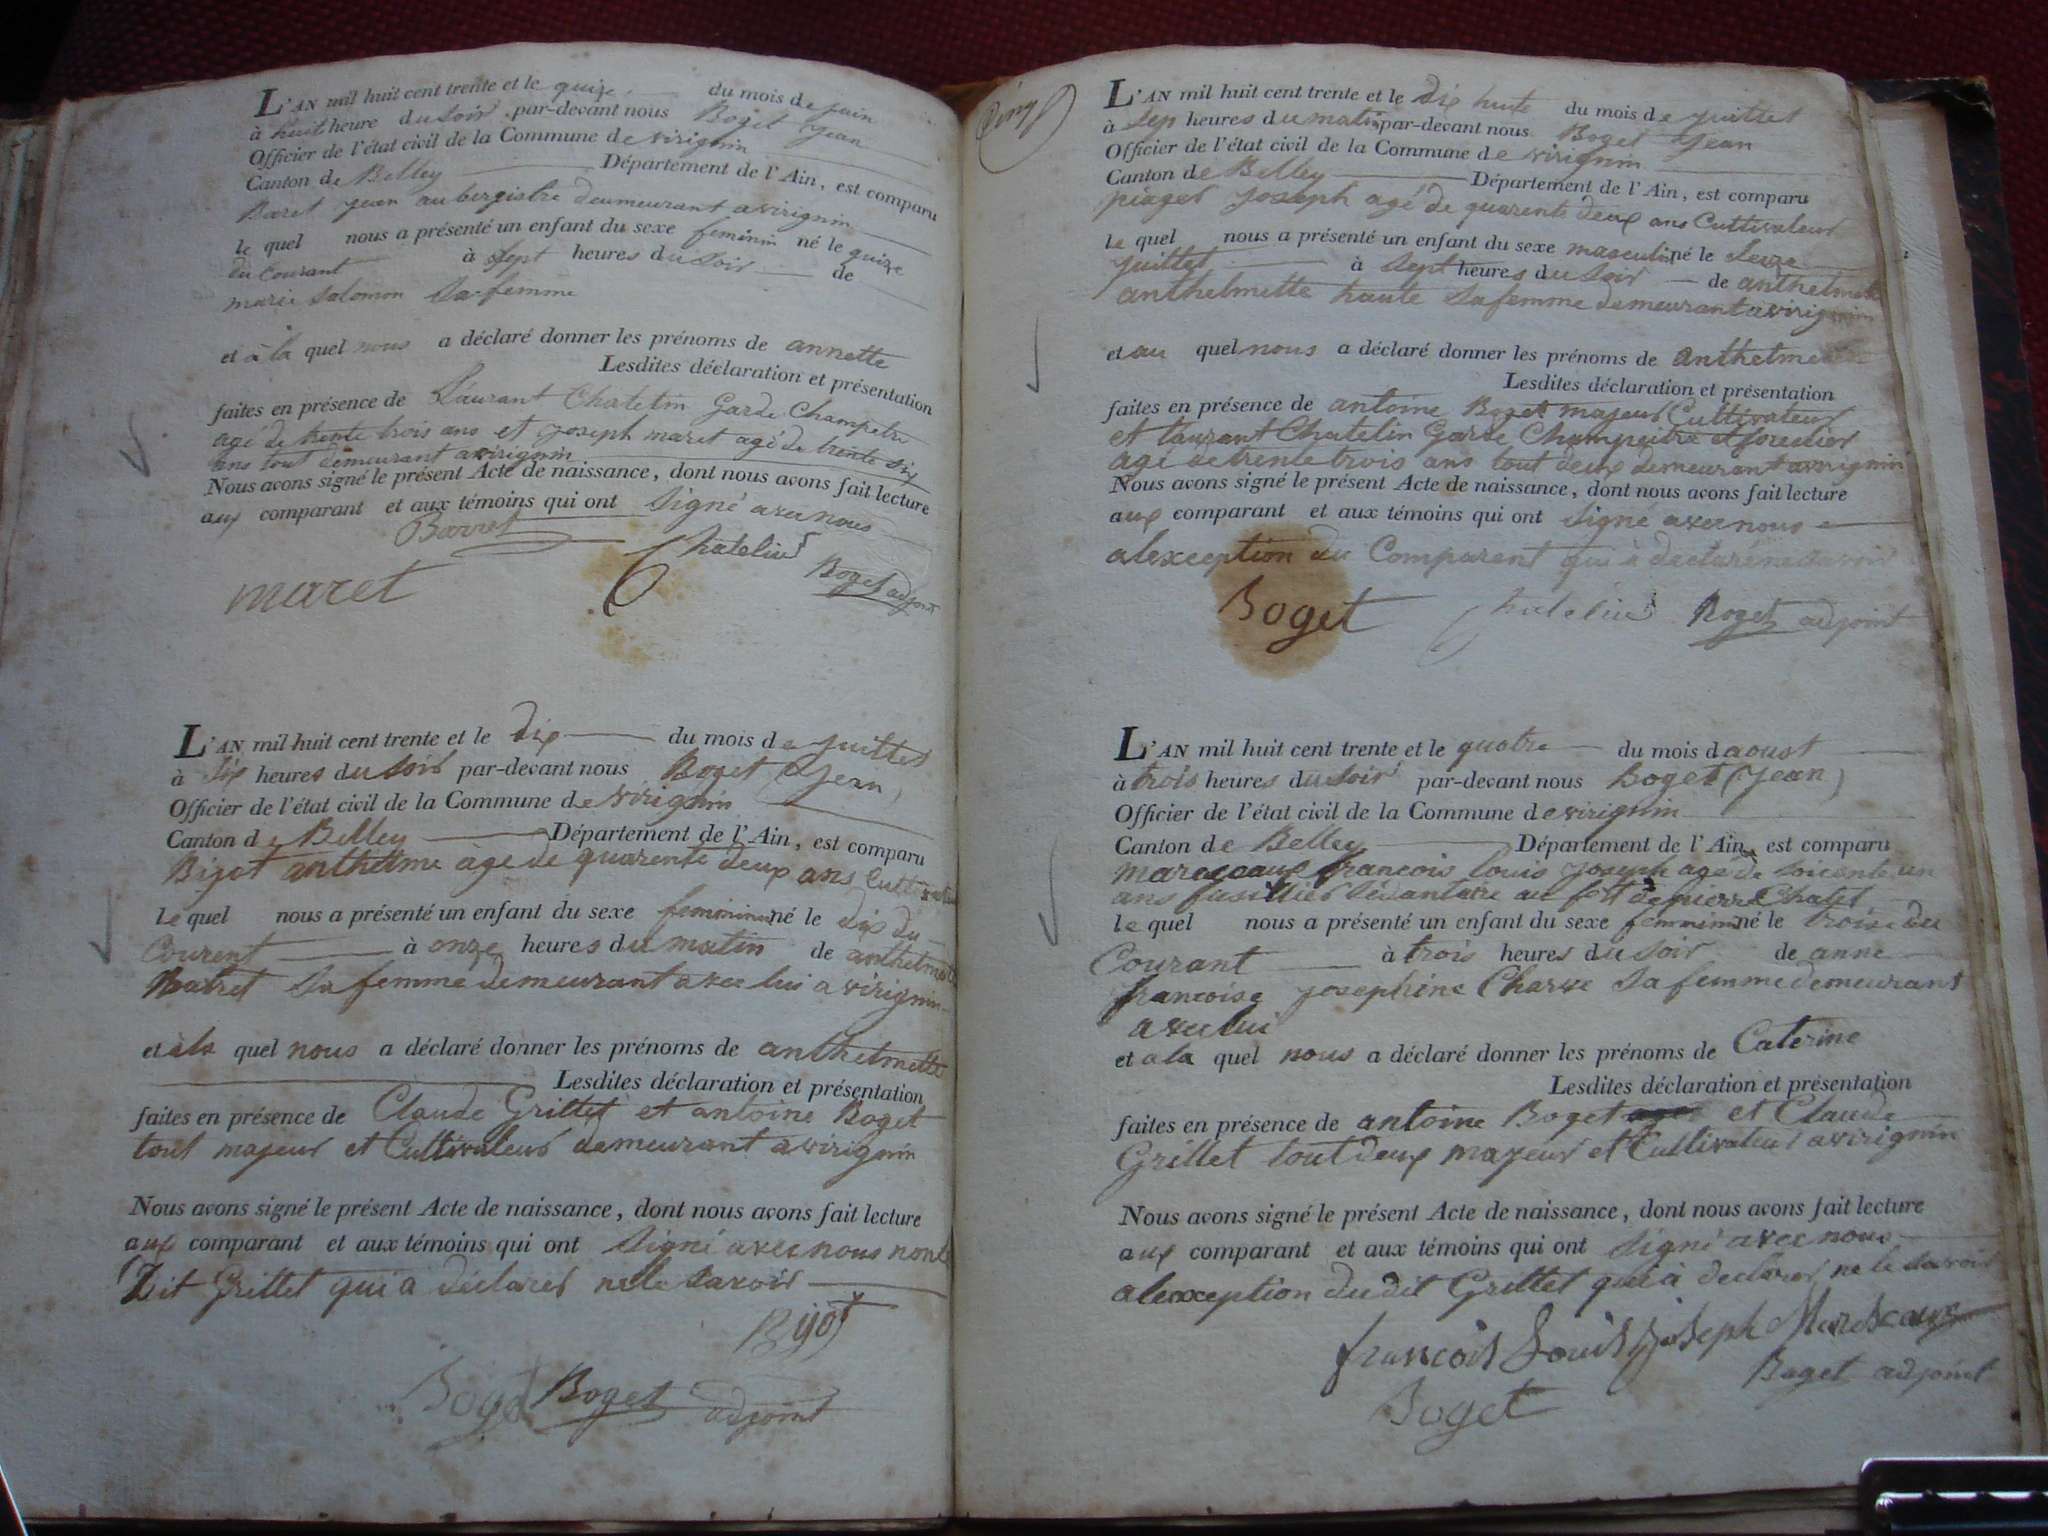 L'AN mil huit cent trente et le quize du mois de juin
à huit heure du soir par-devant nous Boget Jean
Officier de l'état civil de la Commune de virignin
Canton de Belley Département de l'Ain, est comparu
Baret jean aubergistre deumeurant a virignin
le quel nous a présenté un enfant du sexe feminin né le quize
du courant à sept heures du soir de
marie Salomon Sa femme
et à la quel nous a déclaré donner les prénoms de annette
Lesdites déclaration et présentation
faites en présence de Laurant Chatelin Garde Champetre
agé de trente trois ans et joseph maret agé de trente six
ans tout demeurant a virignin
Nous avons signé le présent Acte de naissance, dont nous avons fait lecture
aux comparant et aux témoins qui ont signé avec nous
Barret
Chatelin
Boget adjoint
maret
L'AN mil huit cent trente et le dix du mois de juillet
à six heures du soir par-devant nous Boget (Jean)
Officier de l'état civil de la Commune de virignin
Canton de Belley Département de l'Ain, est comparu
Bigot anthelme agé de quarente deux ans
le quel nous a présenté un enfant du sexe né le dix du
Courent à onze heures du matin de
sa femme demeurant avec lui a virignin
et à la quel nous a déclaré donner les prénoms de anthelmette
Lesdites déclaration et présentation
faites en présence de Claude Grillet et antoine Boget
tout majeur et Cultivateur demeurant a virignin
Nous avons signé le présent Acte de naissance, dont nous avons fait lecture
aux comparant et aux témoins qui ont signé avec nous
Dit Grillet qui a déclarer ne le savoir
Bigot
Boget Boget adjoint
L'AN mil huit cent trente et le dix huite du mois de juillet
à sep heures du matin par-devant nous Boget Jean
Officier de l'état civil de la Commune de virignin
Canton de Belley Département de l'Ain, est comparu
piaget joseph agé de quarente deux ans Cultivateur
le quel nous a présenté un enfant du sexe masculin né le seize
juillet à sept heures du soir de
anthelmette haute sa femme demeurant a virignin
et au quel nous a déclaré donner les prénoms de
Lesdites déclaration et présentation
faites en présence de antoine Boget majeur Cultivateur
et Laurant Chatelin Garde et forestier
agé de trente trois ans tout deux demeurant a virignin
Nous avons signé le présent Acte de naissance, dont nous avons fait lecture
aux comparant et aux témoins qui ont signé avec nous
alexception du Comparent qui à declaré ne savoir
Boget Chatelin Boget adjoint
L'AN mil huit cent trente et le quatre du mois daoust
à trois heures du soir par-devant nous Boget (Jean)
Officier de l'état civil de la Commune de virignin
Canton de Belley Département de l'Ain, est comparu
francois louis joseph agé de soicente un
ans fusillier Sédantaire au fort de pierre Chatel
le quel nous a présenté un enfant du sexe feminin né le trois du
Courant à trois heures du soir de anne
francoise josephine Charve sa femme demeurant
avec lui
et a la quel nous a déclaré donner les prénoms de Caterine
Lesdites déclaration et présentation
faites en présence de antoine Boget et Claude
Grillet tout deux majeur et Cultivateur a virignin
Nous avons signé le présent Acte de naissance, dont nous avons fait lecture
aux comparant et aux témoins qui ont signé avec nous
alexception dudit Grillet qui à declarer ne le savoir
francois Louis joseph
Boget adjoint
Boget